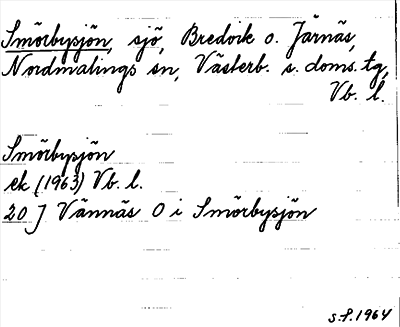 Smörbysjön, sjö, Bredvik o. Järnäs,
Nordmalings sn, Västerb. s. doms. tg,
Vb. l.
Smörbysjön
ek (1963) Vb. l.
20 J Vännäs O i Smörbysjön
s.f. 1964